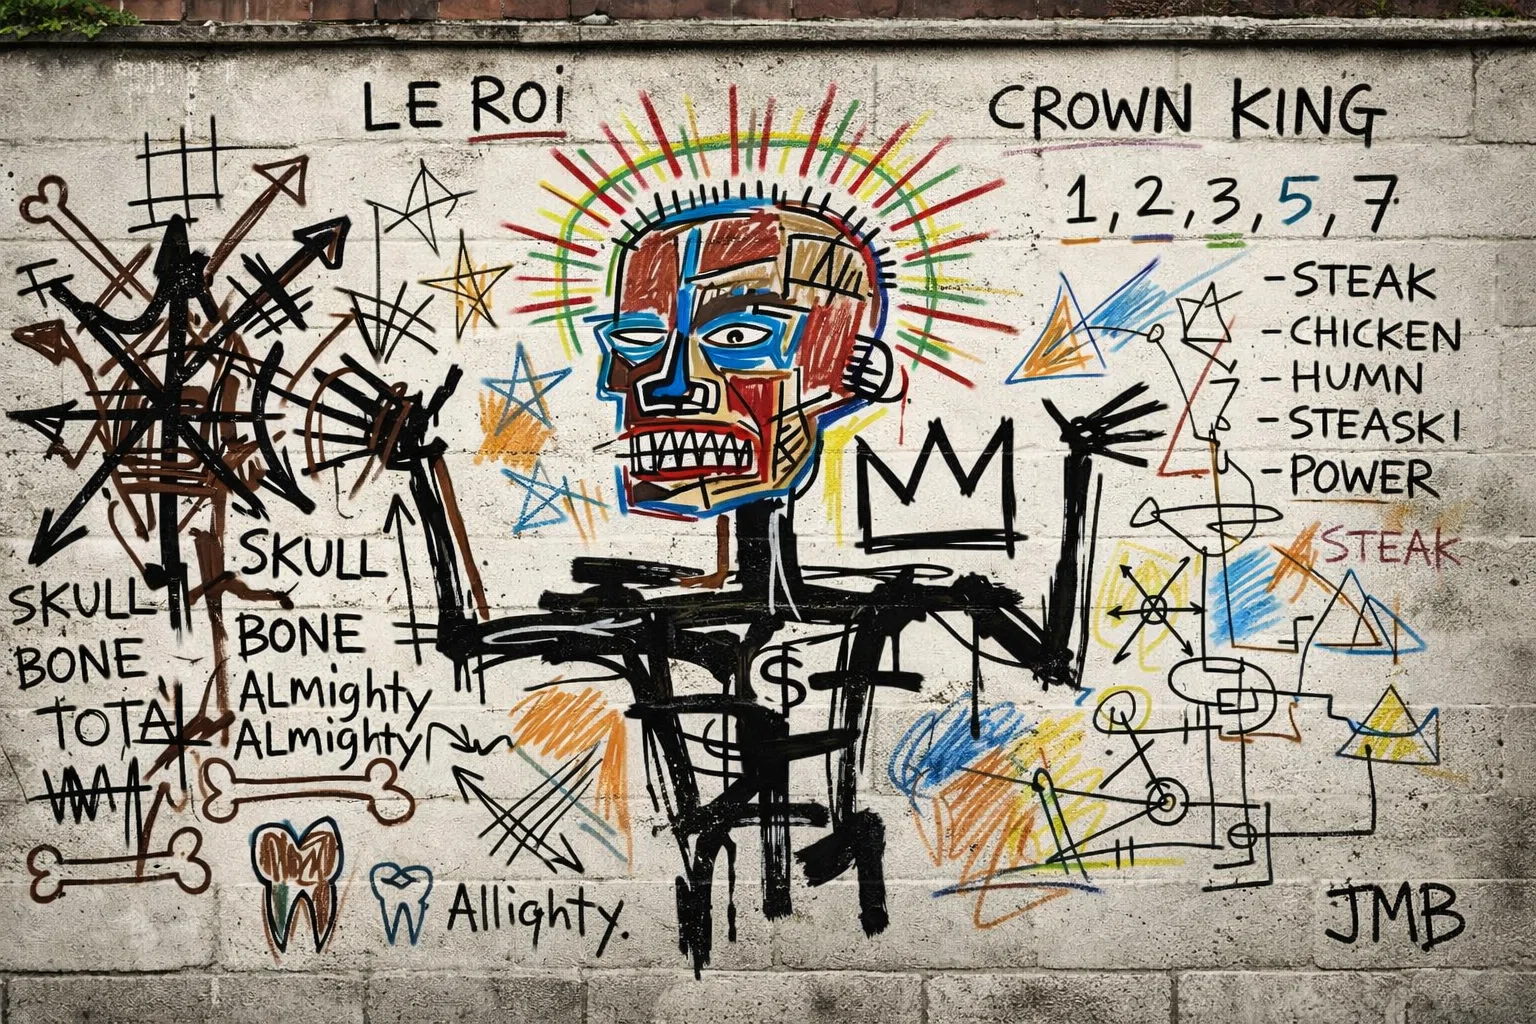 LE ROi
CROWN KING
1, 2, 3, 5, 7
- STEAK
- CHICKEN
- HUMN
- STEASKI
- POWER
STEAK
SKULL
BONE
TOTAL
SKULL
BONE
ALmighty
ALmighty
$
Allighty.
JMB